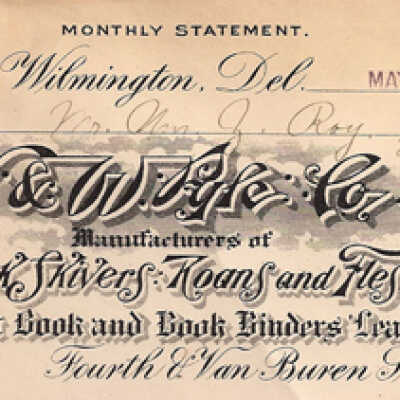 MONTHLY STATEMENT.
Wilmington, Del. MAY
Mr. Wm. J. Roy,
& W. Pyle Co
Manufacturers of
k Skivers: Roans and Fles
t Book and Book Binders' Lea
Fourth & Van Buren S